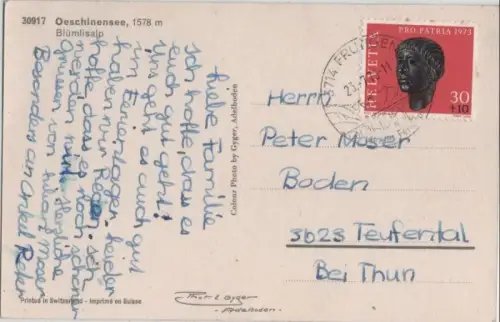 30917 Oeschinensee, 1578 m
Blümlisalp
Liebe Familie
Ich hoffe, dass es
euch gut geht!
Uns geht es auch gut
im Ferienlager. Leider
haben wir Regen. Ich
hoffe, dass es noch schöner
werden wird. Herzliche
Grüsse von
Besonders an Onkel Peter
Colour Photo by Gyger, Adelboden
PRO PATRIA 1973
HELVETIA
30
+10
3714 FRUTIGEN
Herrn
Peter Moser
Boden
3623 Teufental
Bei Thun
Printed in Switzerland - Imprimé en Suisse
Gyger
Adelboden